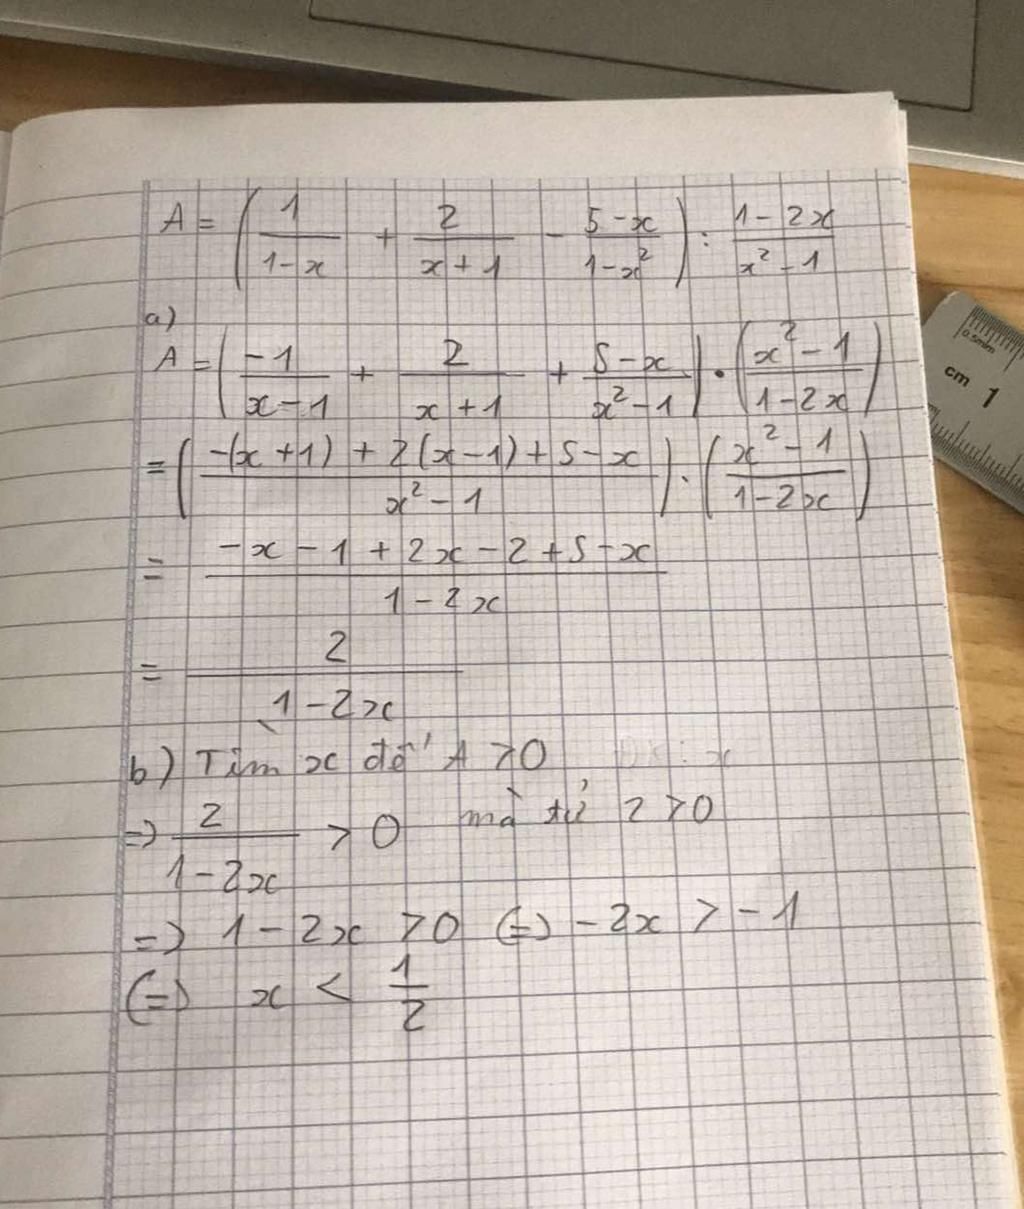 A = (1/(1-x) + 2/(x+1) - (5-x)/(1-x²)) : (1-2x)/(x²-1)
a)
A = (-1/(x-1) + 2/(x+1) + (5-x)/(x²-1)) • ((x²-1)/(1-2x))
= ((-(x+1) + 2(x-1) + 5-x)/(x²-1)) . ((x²-1)/(1-2x))
= (-x-1+2x-2+5-x)/(1-2x)
= 2/(1-2x)
b) Tìm x để A > 0
=> 2/(1-2x) > 0 mà tử 2 > 0
=> 1-2x > 0 (=) -2x > -1
(=) x < 1/2
0.5mm
cm 1